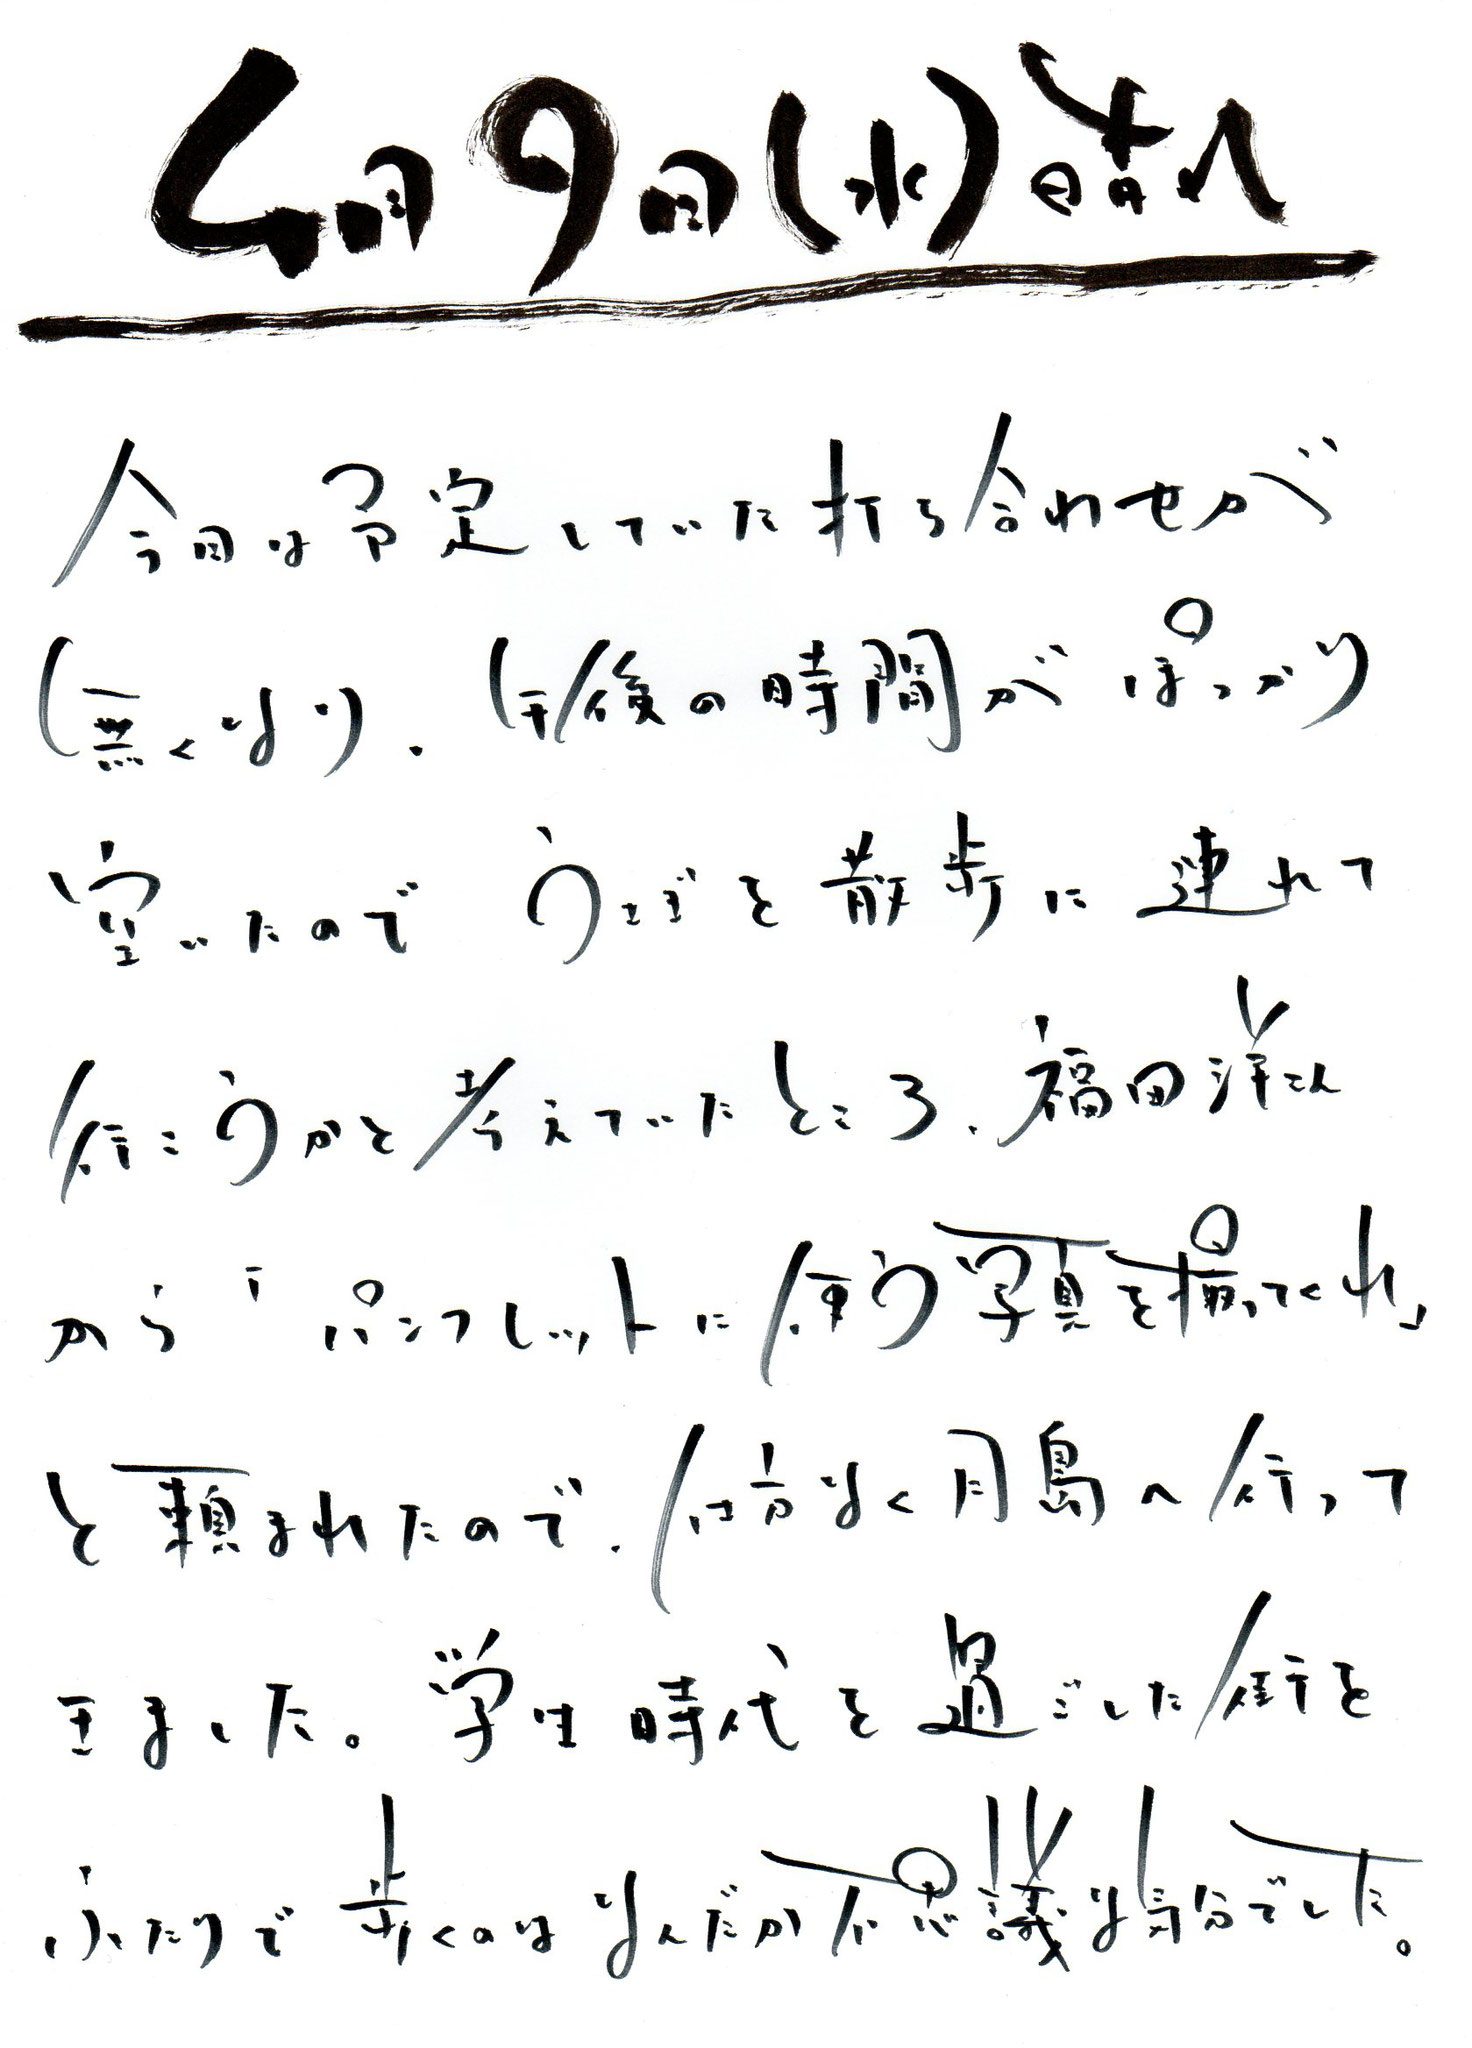 4月9日(水)晴れ
今日は予定していた打ち合わせが
無くなり、午後の時間がぽっかり
空いたので うさぎを散歩に連れて
行こうかと考えていたところ、福田洋さん
から「パンフレットに使う写真を撮ってくれ」
と頼まれたので、仕方なく月島へ行って
きました。学生時代を過ごした街を
ふたりで歩くのはなんだか不思議な気分でした。